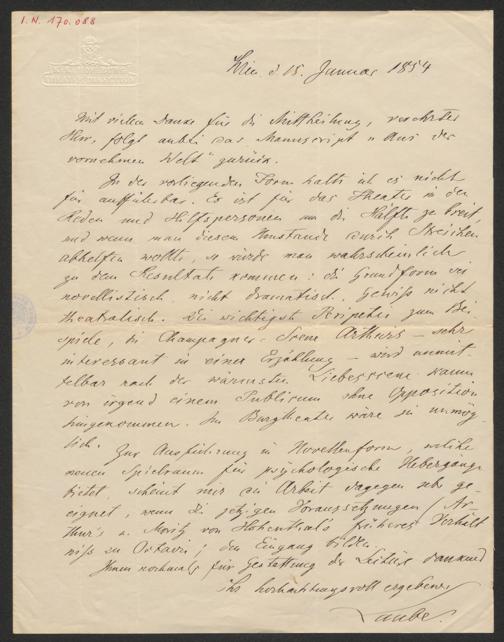 I.N. 170.088
Wien d 15. Januar 1854
Mit vielem Danke für die Mittheilung, verehrter
Herr, folgt anbei das Manuscript "Aus der
vornehmen Welt" zurück.
In der vorliegenden Form halte ich es nicht
für aufführbar. Es ist für das Theater in den
Reden und Hilfspersonen um die Hälfte zu breit,
und wenn man diesem Umstande durch Streichen
abhelfen wollte, so würde man wahrscheinlich
zu dem Resultate kommen: die Grundform sei
novellistisch, nicht dramatisch, gewiss nicht
theatralisch. Die wichtigste Peripetie zum Bei-
spiele, die Champagner-Scene Arthurs – sehr
interessant in einer Erzählung – wird unmit-
telbar nach der wärmsten Liebesscene kaum
von irgend einem Publicum ohne Opposition
hingenommen. Im Burgtheater wäre sie unmög-
lich.
Zur Ausführung in Novellenform, welche
neuen Spielraum für psychologische Uebergänge
bietet, scheint mir die Arbeit dagegen sehr ge-
eignet, wenn die jetzigen Voraussetzungen (Ar-
thur's u. Moritz von Hohenthals früheres Verhält-
niss zu Octavie) den Eingang bilden.
Ihnen nochmals für Gestattung der Lectüre dankend
Ihr hochachtungsvoll ergebener
Laube.